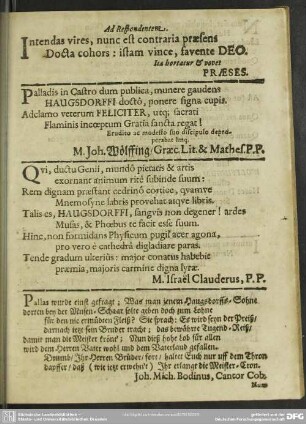 Ad Respondentem.
Intendas vires, nunc est contraria præsens
Docta cohors: istam vince, favente DEO.
Ita hortatur & vovet
PRÆSES.
Palladis in Castro dum publica, munere gaudens
HAUGSDORFFI docto, ponere signa cupis.
Adclamo veterum FELICITER, utq; sacrati
Flaminis incœptum Gratia sancta regat!
Erudito ac modesto suo discipulo
M. Joh. Wolffing/ Græc. Lit. & Mathes. P.P.
Qvi, ducta Genii, mundô pietatis & artis
exornant animum ritè subinde suum:
Rem dignam præstant cedrinô cortice, qvamve
Mnemosyne labris provehat atqve libris.
Talis es, HAUGSDORFFI, sangvis non degener! ardes
Musis, & Phœbus te facit esse suum.
Hinc, non formidans Physicum pugil acer agona,
pro verò è cathedrâ digladiare paras.
Tende gradum ulteriùs: major conatus habebit
præmia, majoris carmine digna lyræ.
M. Israël Clauderus, P.P.
Pallas wurde einst gefragt; Was man jenem Haugsdorffs-Sohne
dorten bey der Musen-Schaar solte geben doch zum Lohne
für den nie ermüdten Fleiß? Sie sprach: Es wird seyn der Preiß/
darnach itzt sein Bruder tracht; das bewährte Tugend-Reiß/
damit man die Meister krönt; Nun diß hohe Lob für allen
wird dem Herren Vater wohl und dem Vaterland gefallen.
Drumb/ Ihr Herren Brüder/ fort/ haltet Euch nur auf dem Thron
dapffer/ daß (wie itzt erwehnt) Ihr erlangt die Meister-Cron.
Joh. Mich. Bodinus, Cantor Cob.